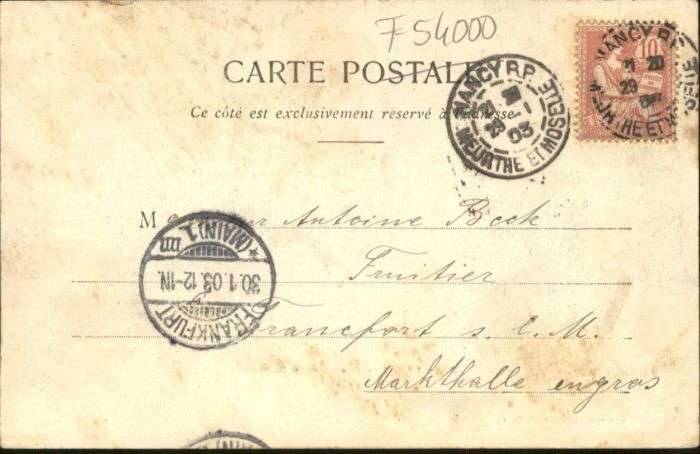 F 54000
CARTE POSTALE
Ce côté est exclusivement reservé à l'adresse
NANCY R.P.
29
03
MEURTHE ET MOSELLE
10
NANCY R.P.
7 20
29
MEURTHE ET MOSELLE
M Antoine Beck
Fruitier
Francfort s. l. M.
Markthalle engros
FRANKFURT
30.1.03.12-1N.
* (MAIN) 1